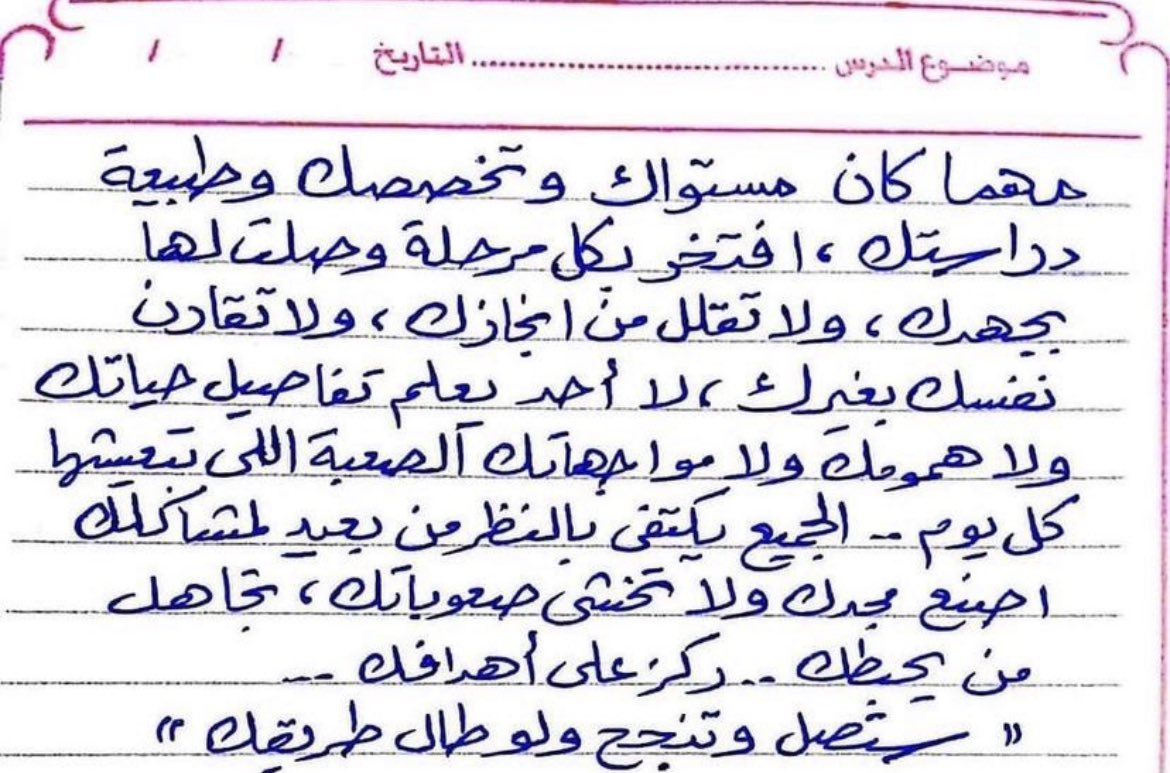 موضوع الدرس ........................ التاريخ / /
مهما كان مستواك و تخصصك وطبيعة
دراستك ، افتخر بكل مرحلة وصلت لها
بجهدك ، ولا تقلل من انجازك ، ولا تقارن
نفسك بغيرك ، لا أحد يعلم تفاصيل حياتك
ولا همومك ولا مواجهاتك الصعبة اللي تعيشها
كل يوم .. الجميع يكتفي بالنظر من بعيد لمشاكلك
اصنع مجدك ولا تخشى صعوباتك ، تجاهل
من يحبطك .. ركز على أهدافك ...
" ستصل وتنجح ولو طال طريقك "